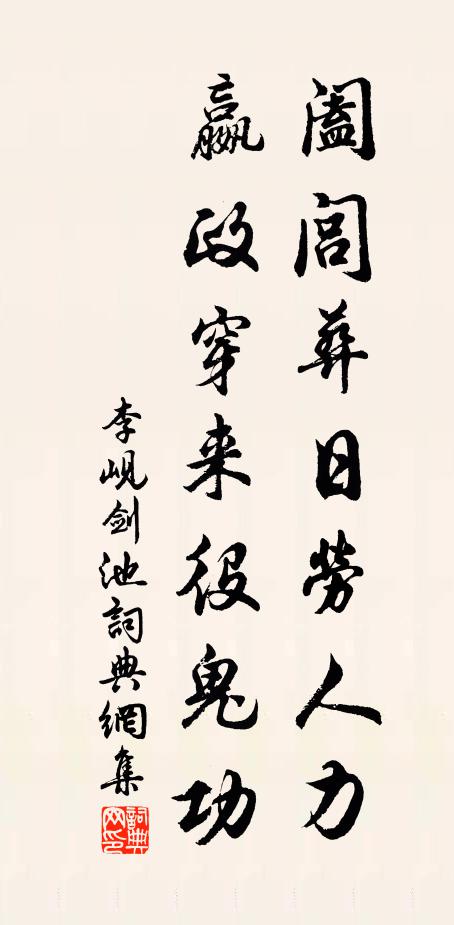 阖闾葬日勞人力
嬴政穿来役鬼功
李峴剑池詞典網集
詞典网印